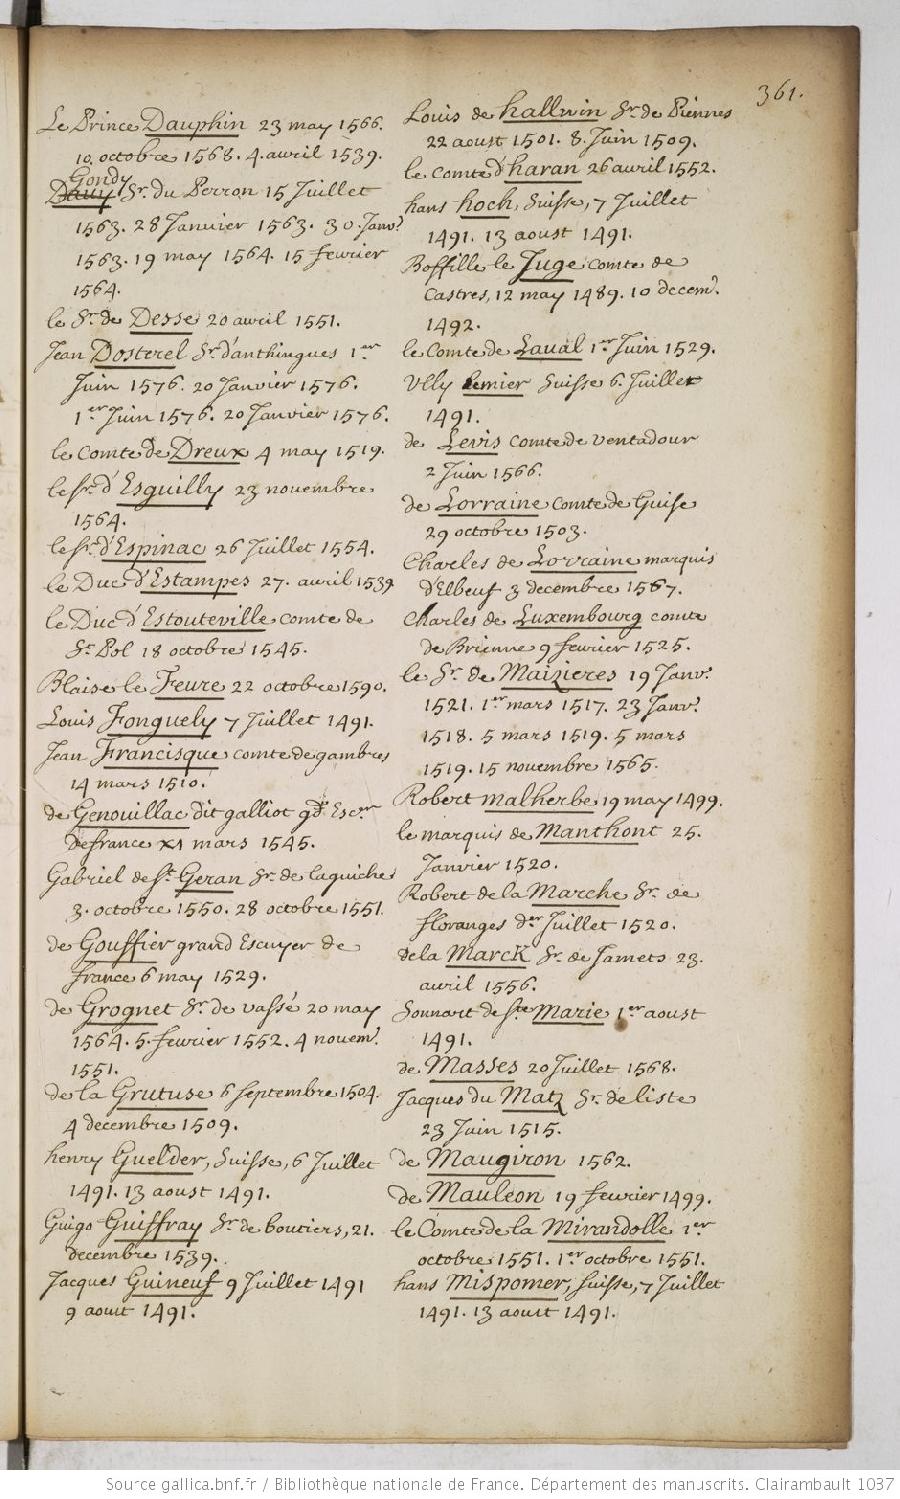 361.
Le Prince Dauphin 23 may 1566.
10. octobre 1568. 4. avril 1539.
Gondy
Davy Sr. du Perron 15 Juillet
1563. 28 Janvier 1563. 30. Janvr.
1563. 19 may 1564. 15 fevrier
1564.
le Sr. de Desse 20 avril 1551.
Jean Dosterel Sr. d'anthingues 1er
Juin 1576. 20 Janvier 1576.
1er Juin 1576. 20 Janvier 1576.
le Comte de Dreux 4 may 1519.
le Sr. d'Esguilly 23 novembre
1564.
le Sr. d'Espinac 26 Juillet 1554.
le Duc d'Estampes 27. avril 1539
le Duc d'Estouteville comte de
St. Pol 18 octobre 1545.
Blaise le Feure 22 octobre 1590.
Louis Fonguely 7 Juillet 1491.
Jean Francisque comte de gambres
14 mars 1510.
de Genouillac dit galliot gd. Escer
de france XI mars 1545.
Gabriel de St. Geran Sr. de laguiche
3. octobre 1550. 28 octobre 1551
de Gouffier grand Escuyer de
france 6 may 1529.
de Grognet Sr. de vassé 20 may
1564. 5. fevrier 1552. 4 novemr.
1551.
de la Grutuse 6 septembre 1504.
4 decembre 1509.
henry Guelder, Suisse, 6 Juillet
1491. 13 aoust 1491.
Guigo Guiffray Sr. de boutiers, 21.
decembre 1539.
Jacques Guineuf 9 Juillet 1491
9 aoust 1491.
Louis de hallwin Sr. de Piennes
22 aoust 1501. 8. Juin 1509.
le Comte d'haran 26 avril 1552.
hans hoch, Suisse, 7 Juillet
1491. 13 aoust 1491.
Boffille le Juge comte de
Castres, 12 may 1489. 10 decemr.
1492.
le Comte de Laval 1er Juin 1529.
Ully Lemier Suisse 6. Juillet
1491.
de Levis comte de ventadour
2 Juin 1566.
de Lorraine comte de Guise
29 octobre 1503.
Charles de Lorraine marquis
d'Elbeuf 3 decembre 1567.
Charles de Luxembourg comte
de Brienne 9 fevrier 1525.
le Sr. de Maizieres 19 Janvr.
1521. 1er mars 1517. 23 Janvr.
1518. 5 mars 1519. 5 mars
1519. 15 novembre 1565.
Robert Malherbe 19 may 1499.
le marquis de Manthont 25.
Janvier 1520.
Robert de la Marche Sr. de
floranges der Juillet 1520.
de la Marck Sr. de Jamets 23.
avril 1556.
Sonnart de Ste Marie 1er aoust
1491.
de Masses 20 Juillet 1568.
Jacques du Matz Sr. de liste
23 Juin 1515.
de Maugiron 1562.
de Mauleon 19 fevrier 1499.
le Comte de la Mirandolle 1er
octobre 1551. 1er octobre 1551.
hans Mispomer, Suisse, 7 Juillet
1491. 13 aoust 1491.
Source gallica.bnf.fr / Bibliothèque nationale de France. Département des manuscrits. Clairambault 1037